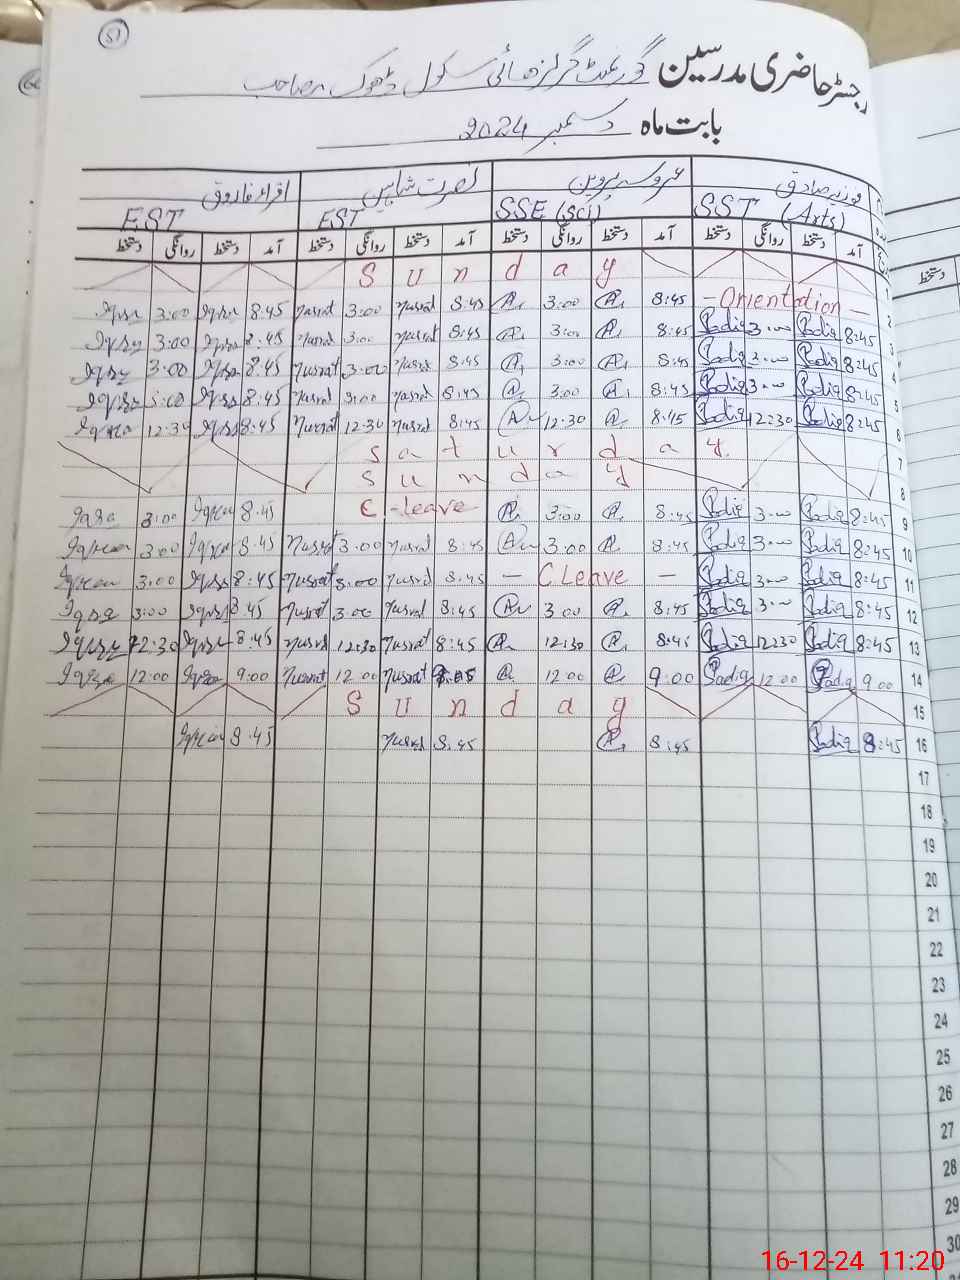 51
رجسٹر حاضری مدرسین گورنمنٹ گرلز ہائی سکول ڈھوک صاحب
بابت ماہ دسمبر 2024
فوزیہ صادق عروسہ پروین نصرت شاہین اقراء فاروق
EST EST SSE (Sci) SST (Arts)
آمد دستخط روانگی دستخط آمد دستخط روانگی دستخط آمد دستخط روانگی دستخط آمد دستخط روانگی دستخط
دستخط
Sunday 1
Iqra 3:00 Iqra 8:45 Nusrat 3:00 Nusrat 8:45 A 3:00 A 8:45 - Orientation - 2
Iqra 3:00 Iqra 8:45 Nusrat 3:00 Nusrat 8:45 A 3:00 A 8:45 Sadiq 3:00 Sadiq 8:45 3
Iqra 3:00 Iqra 8:45 Nusrat 3:00 Nusrat 8:45 A 3:00 A 8:45 Sadiq 3:00 Sadiq 8:45 4
Iqra 3:00 Iqra 8:45 Nusrat 3:00 Nusrat 8:45 A 3:00 A 8:45 Sadiq 3:00 Sadiq 8:45 5
Iqra 12:30 Iqra 8:45 Nusrat 12:30 Nusrat 8:45 A 12:30 A 8:45 Sadiq 12:30 Sadiq 8:45 6
Saturday 7
Sunday 8
Iqra 3:00 Iqra 8:45 C-leave A 3:00 A 8:45 Sadiq 3:00 Sadiq 8:45 9
Iqra 3:00 Iqra 8:45 Nusrat 3:00 Nusrat 8:45 A 3:00 A 8:45 Sadiq 3:00 Sadiq 8:45 10
Iqra 3:00 Iqra 8:45 Nusrat 3:00 Nusrat 8:45 - C.Leave - Sadiq 3:00 Sadiq 8:45 11
Iqra 3:00 Iqra 8:45 Nusrat 3:00 Nusrat 8:45 A 3:00 A 8:45 Sadiq 3:00 Sadiq 8:45 12
Iqra 12:30 Iqra 8:45 Nusrat 12:30 Nusrat 8:45 A 12:30 A 8:45 Sadiq 12:30 Sadiq 8:45 13
Iqra 12:00 Iqra 9:00 Nusrat 12:00 Nusrat A 12:00 A 9:00 Sadiq 12:00 Sadiq 9:00 14
Sunday 15
Iqra 8:45 Nusrat 8:45 A 8:45 Sadiq 8:45 16
17
18
19
20
21
22
23
24
25
26
27
28
29
30
16-12-24 11:20